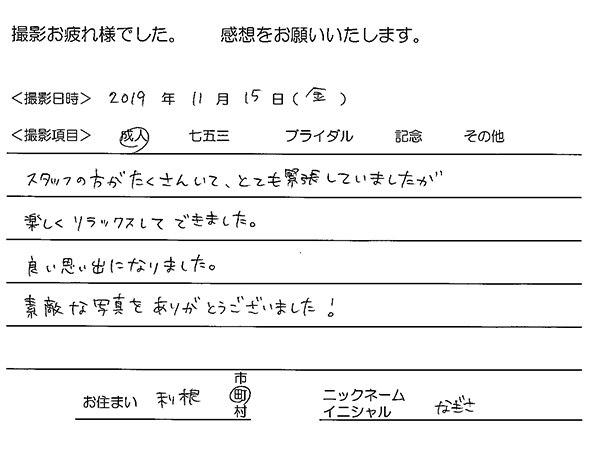 撮影お疲れ様でした。　感想をお願いいたします。
<撮影日時> 2019 年 11 月 15 日(金)
<撮影項目> 成人 七五三 ブライダル 記念 その他
スタッフの方がたくさんいて、とても緊張していましたが
楽しくリラックスしてできました。
良い思い出になりました。
素敵な写真をありがとうございました!
お住まい 利根 市 町 村 ニックネーム イニシャル なぎさ